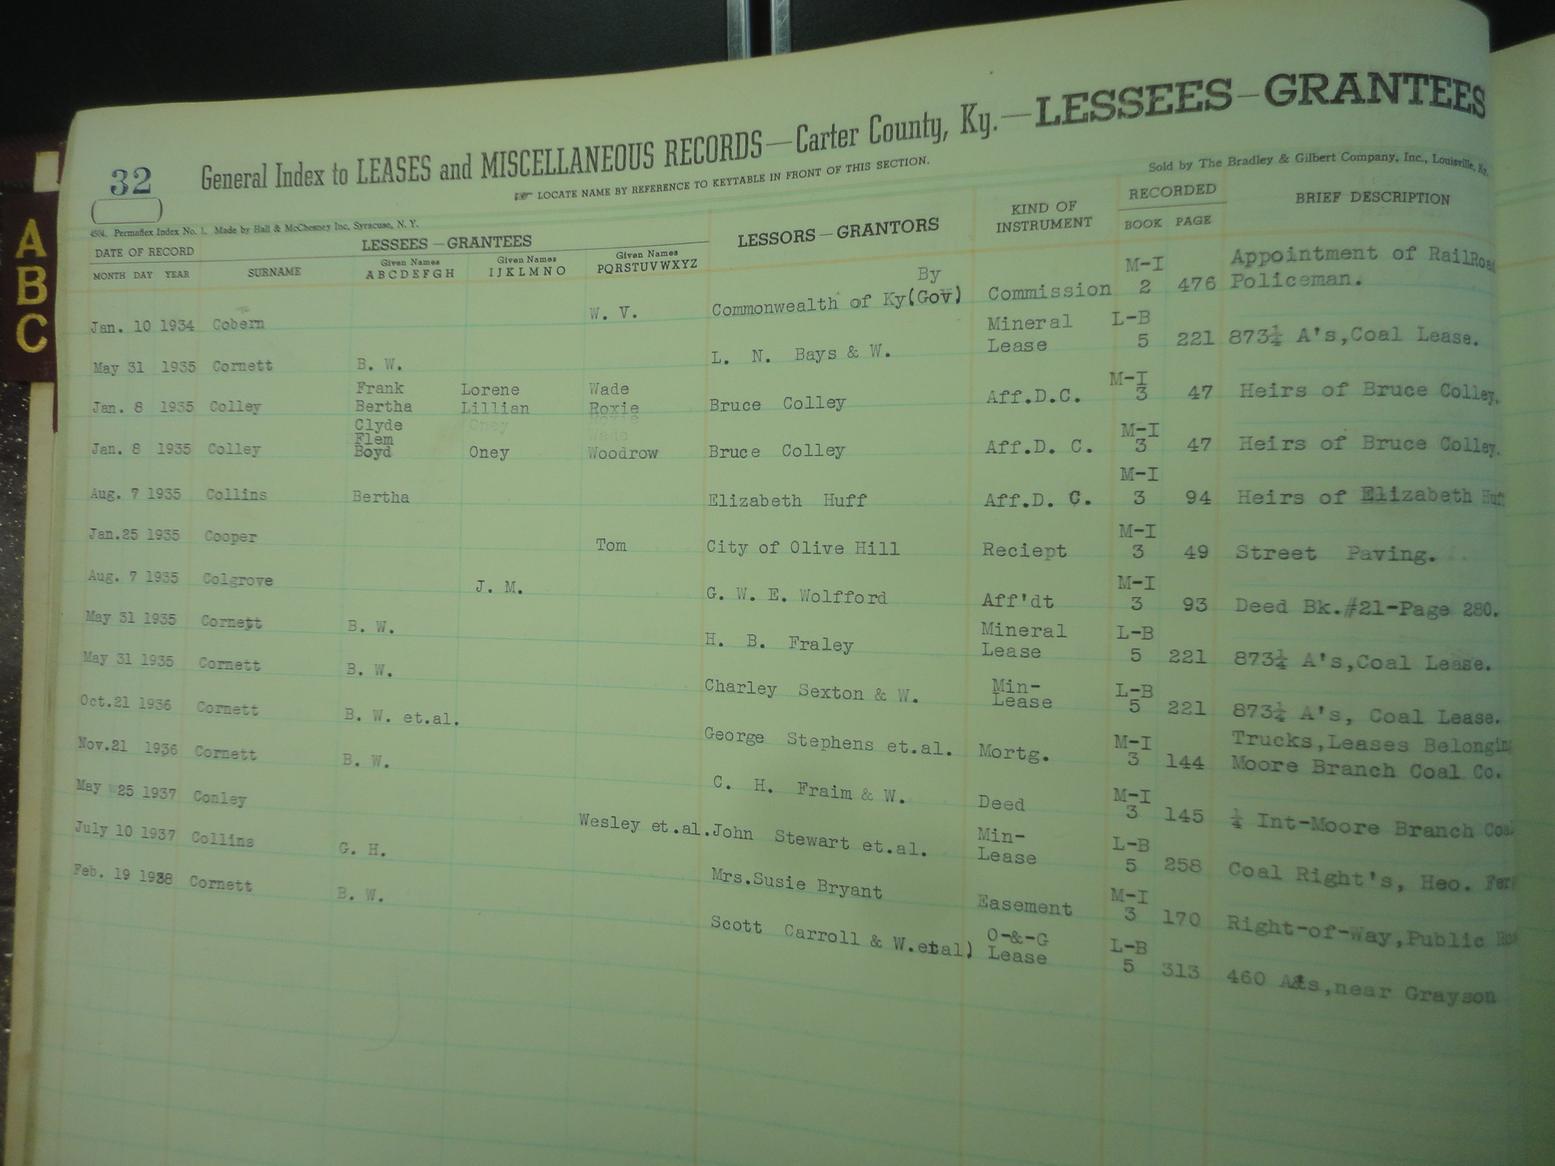 32
General Index to LEASES and MISCELLANEOUS RECORDS — Carter County, Ky. — LESSEES — GRANTEES
LOCATE NAME BY REFERENCE TO KEYTABLE IN FRONT OF THIS SECTION.
Sold by The Bradley & Gilbert Company, Inc., Louisville, Ky.
Permaflex Index No. 1. Made by Hall & McChesney Inc, Syracuse, N. Y.
DATE OF RECORD LESSEES — GRANTEES LESSORS — GRANTORS KIND OF INSTRUMENT RECORDED BRIEF DESCRIPTION
MONTH DAY YEAR SURNAME Given Names ABCDEFGH Given Names IJKLMNO Given Names PQRSTUVWXYZ BOOK PAGE
By M-I Appointment of RailRoa
Jan. 10 1934 Cobern W. V. Commonwealth of Ky(Gov) Commission 2 476 Policeman.
Mineral L-B
May 31 1935 Cornett B. W. L. N. Bays & W. Lease 5 221 873¼ A's,Coal Lease.
Frank Lorene Wade M-I
Jan. 8 1935 Colley Bertha Lillian Roxie Bruce Colley Aff.D.C. 3 47 Heirs of Bruce Colley.
Clyde Oney
Flem Wade M-I
Jan. 8 1935 Colley Boyd Oney Woodrow Bruce Colley Aff.D. C. 3 47 Heirs of Bruce Colley.
M-I
Aug. 7 1935 Collins Bertha Elizabeth Huff Aff.D. C. 3 94 Heirs of Elizabeth Huf
M-I
Jan.25 1935 Cooper Tom City of Olive Hill Reciept 3 49 Street Paving.
M-I
Aug. 7 1935 Colgrove J. M. G. W. E. Wolfford Aff'dt 3 93 Deed Bk.#21-Page 280.
Mineral L-B
May 31 1935 Cornett B. W. H. B. Fraley Lease 5 221 873¼ A's,Coal Lease.
Min- L-B
May 31 1935 Cornett B. W. Charley Sexton & W. Lease 5 221 873¼ A's, Coal Lease.
M-I Trucks,Leases Belongin
Oct.21 1936 Cornett B. W. et.al. George Stephens et.al. Mortg. 3 144 Moore Branch Coal Co.
M-I
Nov.21 1936 Cornett B. W. C. H. Fraim & W. Deed 3 145 ¼ Int-Moore Branch Coa
Min- L-B
May 25 1937 Conley Wesley et.al. John Stewart et.al. Lease 5 258 Coal Right's, Heo.
M-I
July 10 1937 Collins G. H. Mrs.Susie Bryant Easement 3 170 Right-of-Way,Public
O-&-G L-B
Feb. 19 1938 Cornett B. W. Scott Carroll & W.etal) Lease 5 313 460 A's,near Grayson
A
B
C